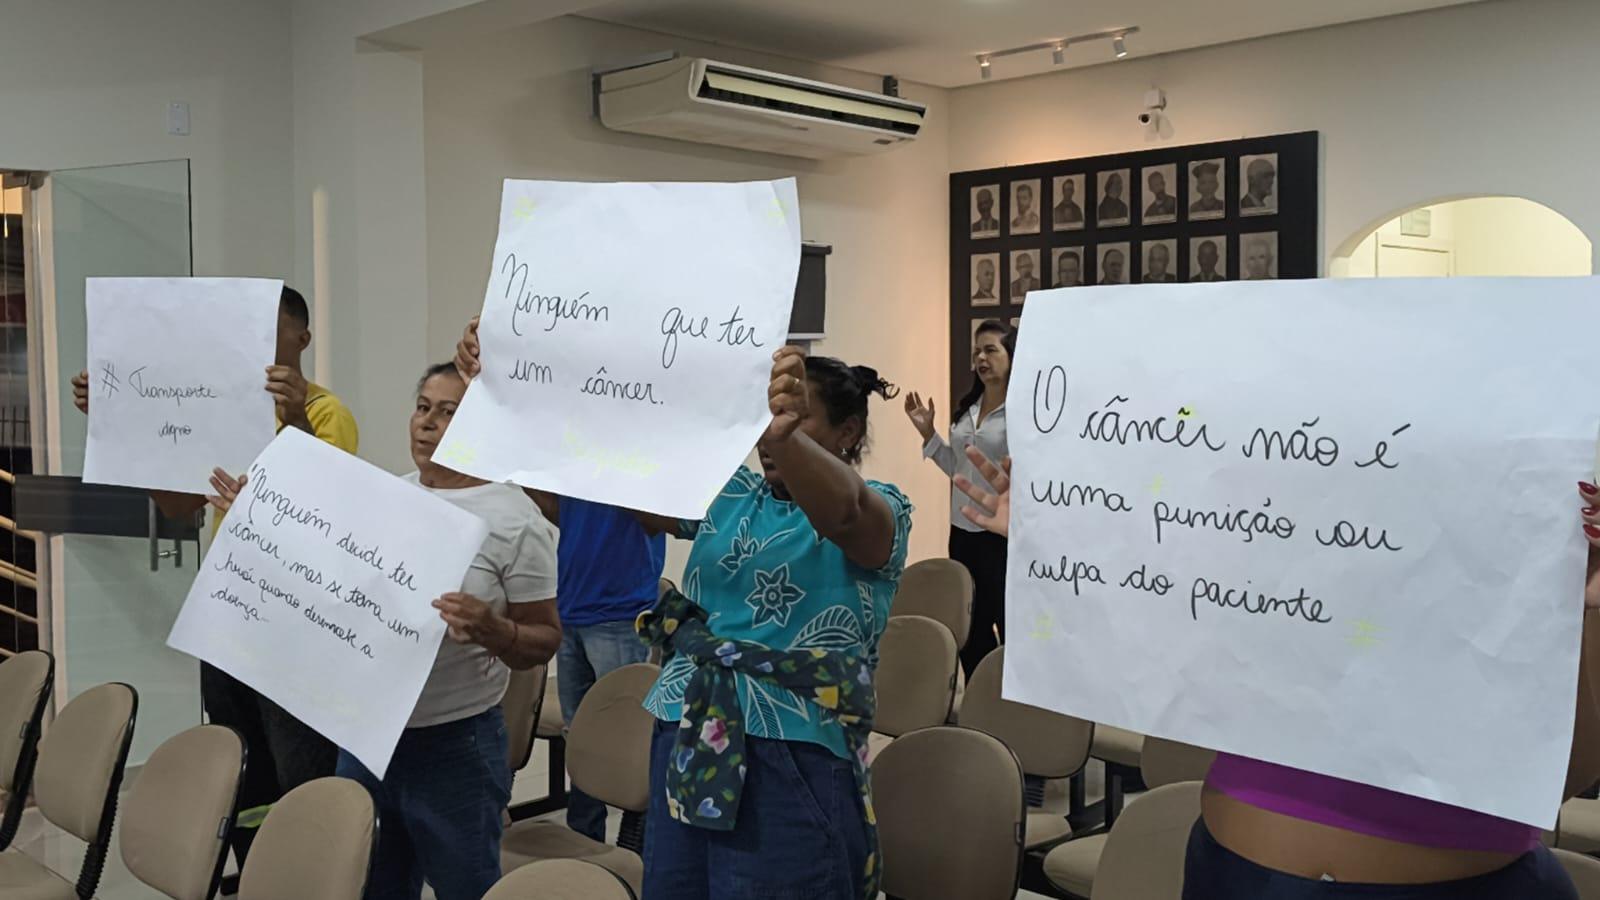 # Transporte
digno
"Ninguém decide ter
câncer, mas se torna um
herói quando desenvolve a
doença...
Ninguém que ter
um câncer.
O câncêr não é
uma punição ou
culpa do paciente